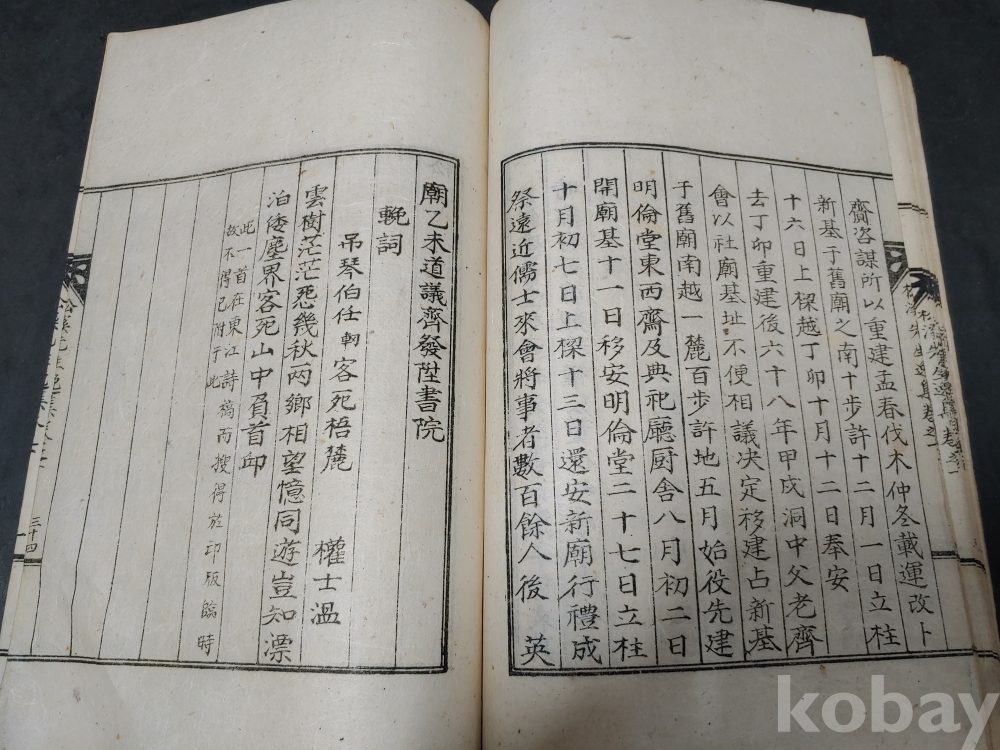 齋咨謀所以重建孟春伐木仲冬載運改卜
新基于舊廟之南十步許十二月一日立柱
十六日上樑越丁卯十月十二日奉安
去丁卯重建後六十八年甲戌洞中父老齊
會以社廟基址不便相議决定移建占新基
于舊廟南越一麓百步許地五月始役先建
明倫堂東西齋及典祀廳厨舍八月初二日
開廟基十一日移安明倫堂二十七日立柱
十月初七日上樑十三日還安新廟行禮成
祭遠近儒士來會將事者數百餘人後 英
廟乙未道議齊發陞書院
輓詞
吊琴伯任軔客死梧麓 權士溫
雲樹茫茫恐幾秋兩鄉相望憶同遊豈知漂
泊倭塵界客死山中肎首丘
此一首在東江詩稿而搜得於印版臨時
故不得已附于此
三十四
kobay